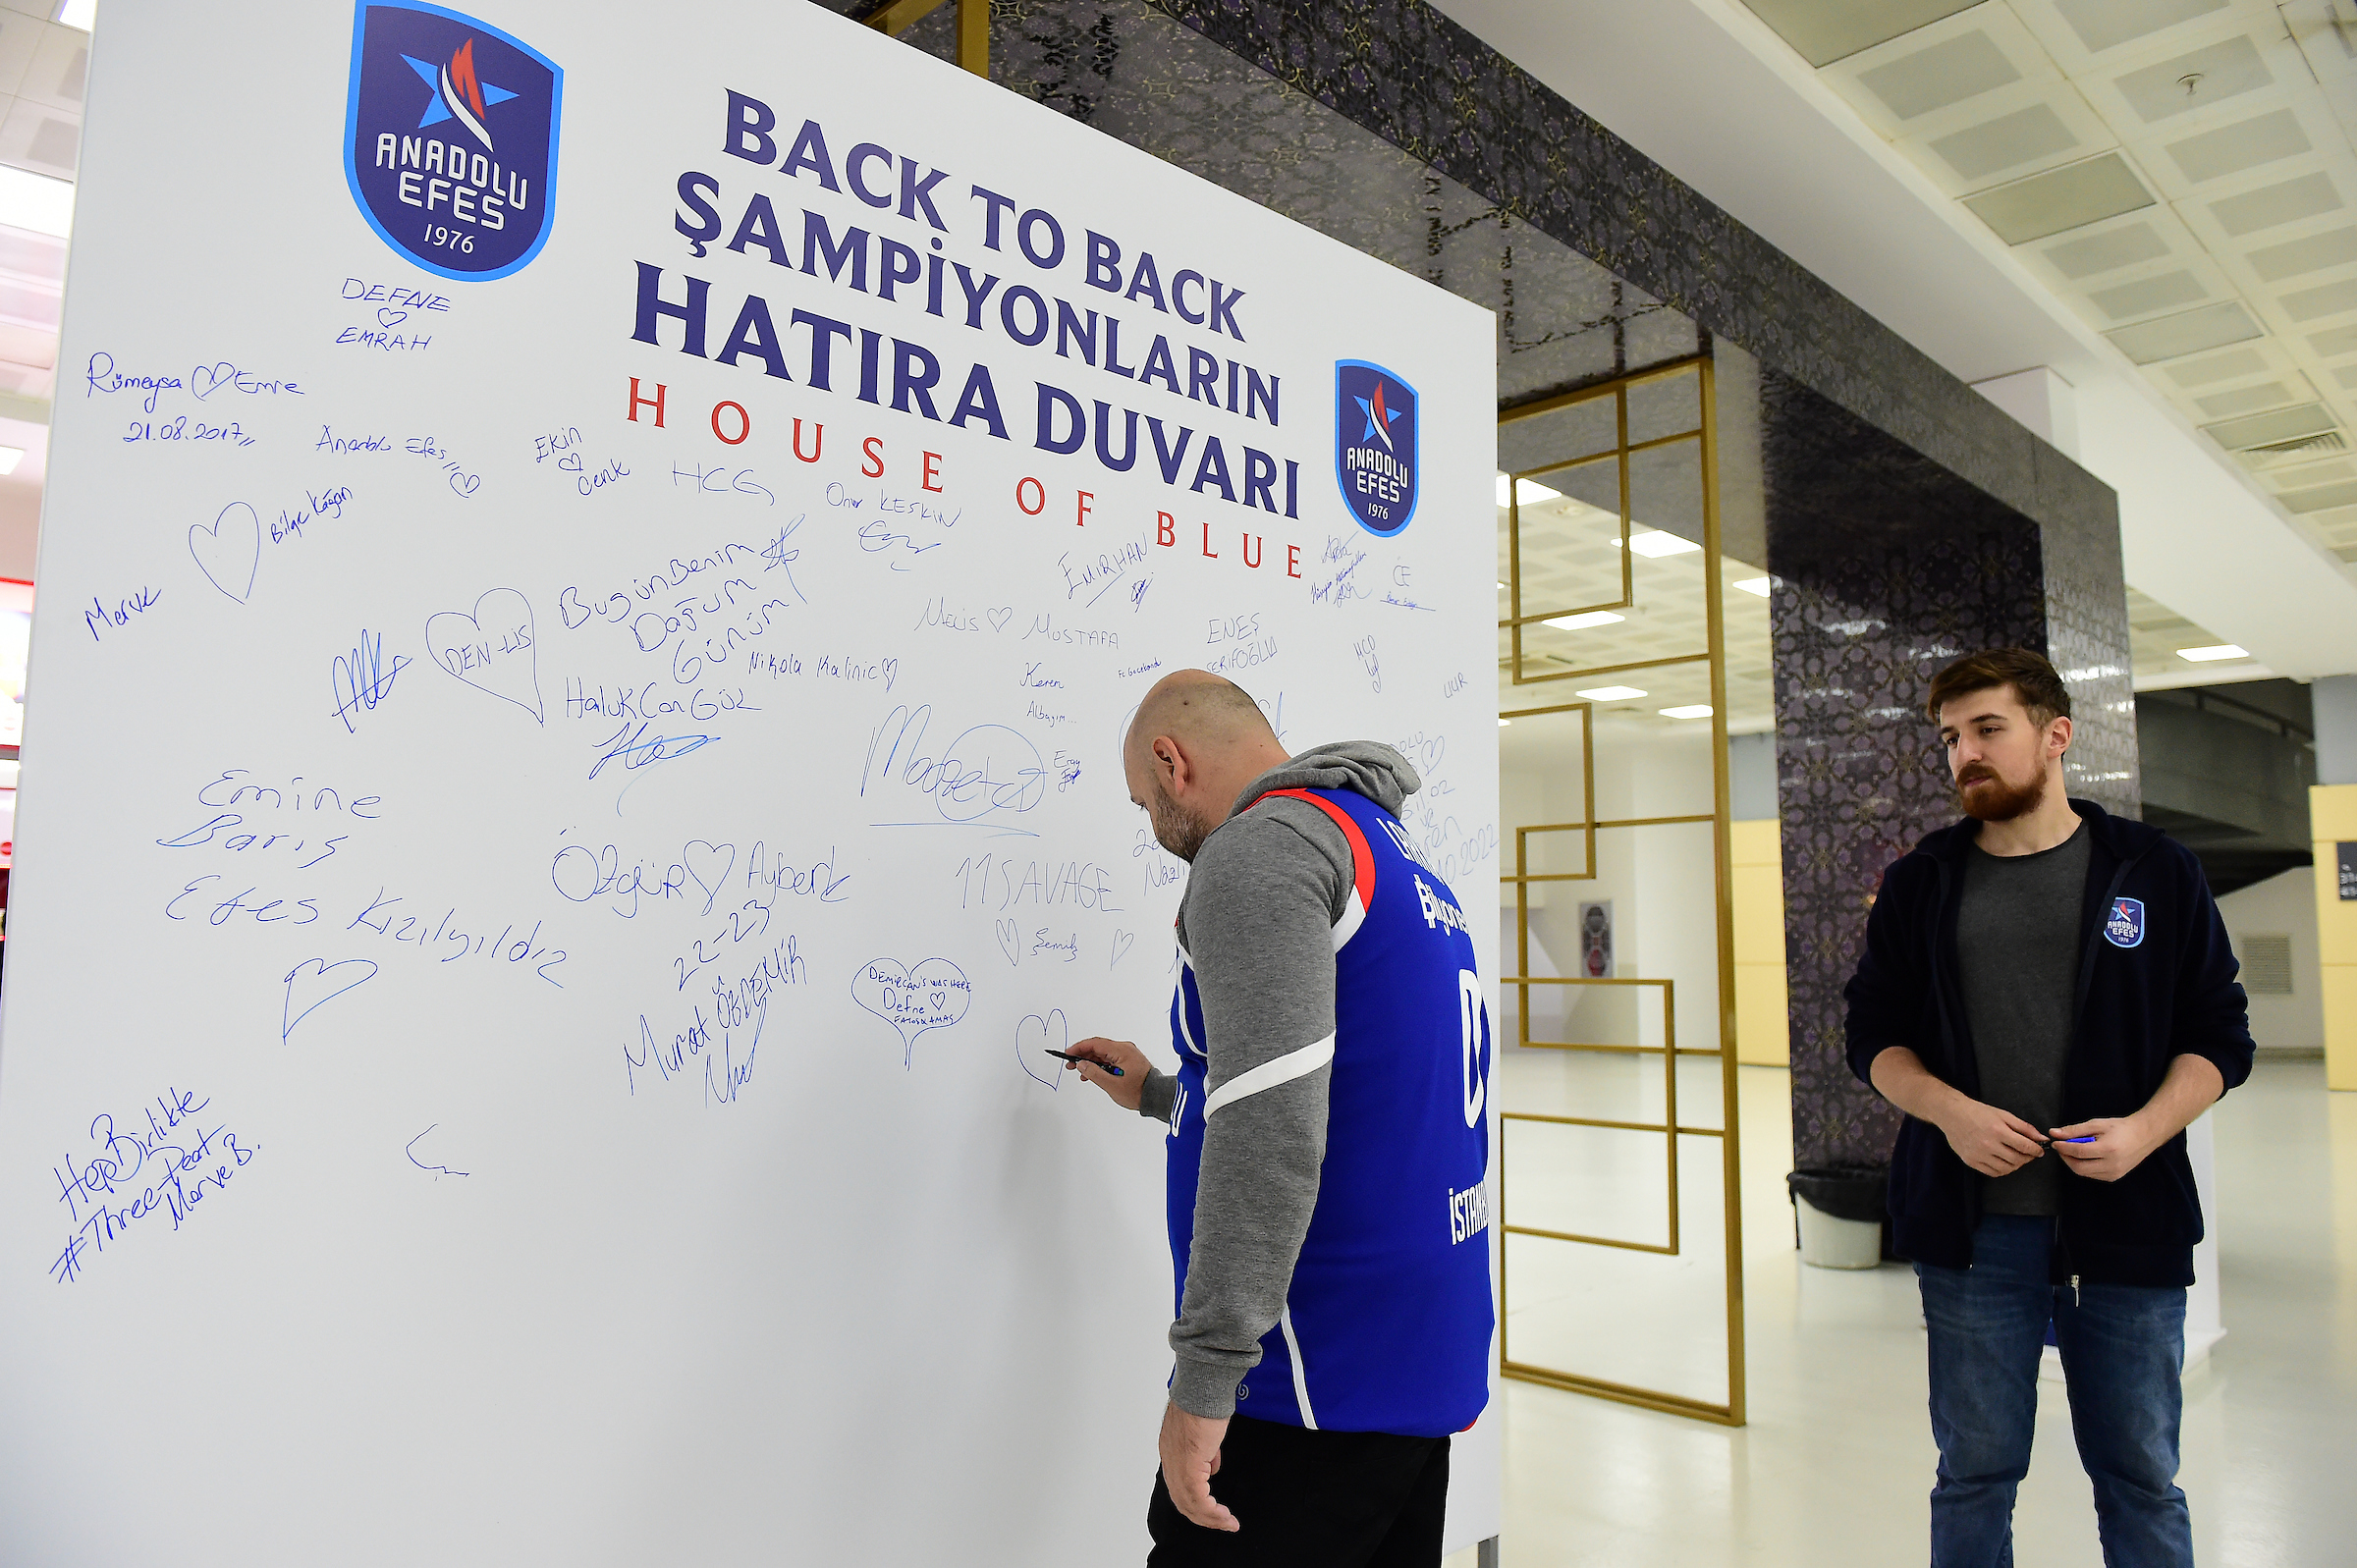 ANADOLU
EFES
1976
BACK TO BACK
ŞAMPİYONLARIN
HATIRA DUVARI
HOUSE OF BLUE
ANADOLU
EFES
1976
DEFNE
EMRAH
Rümeysa Emre
21.08.2017
Anadolu Efes
EKİN
Cenk
HCG
Onur KESKİN
EMİRHAN
Bilge Kağan
Merve
DEN-LİS
Bugün Benim
Doğum
Günüm
Nikola Kalinic
Haluk Can Gül
MELİS MUSTAFA
Kerem
Albayım...
ENEŞ
ŞERİFOĞLU
UUR
Emine
Barış
Efes Kızılyıldız
ÖZGÜR Ayberk
22-23
Murat ÖZDEMİR
11 SAVAGE
DEMİRCAN'S WAS HERE
Defne
HepBirlikte
#Three-Peat
Merve B.
0
İSTANB
ANADOLU
EFES
1976